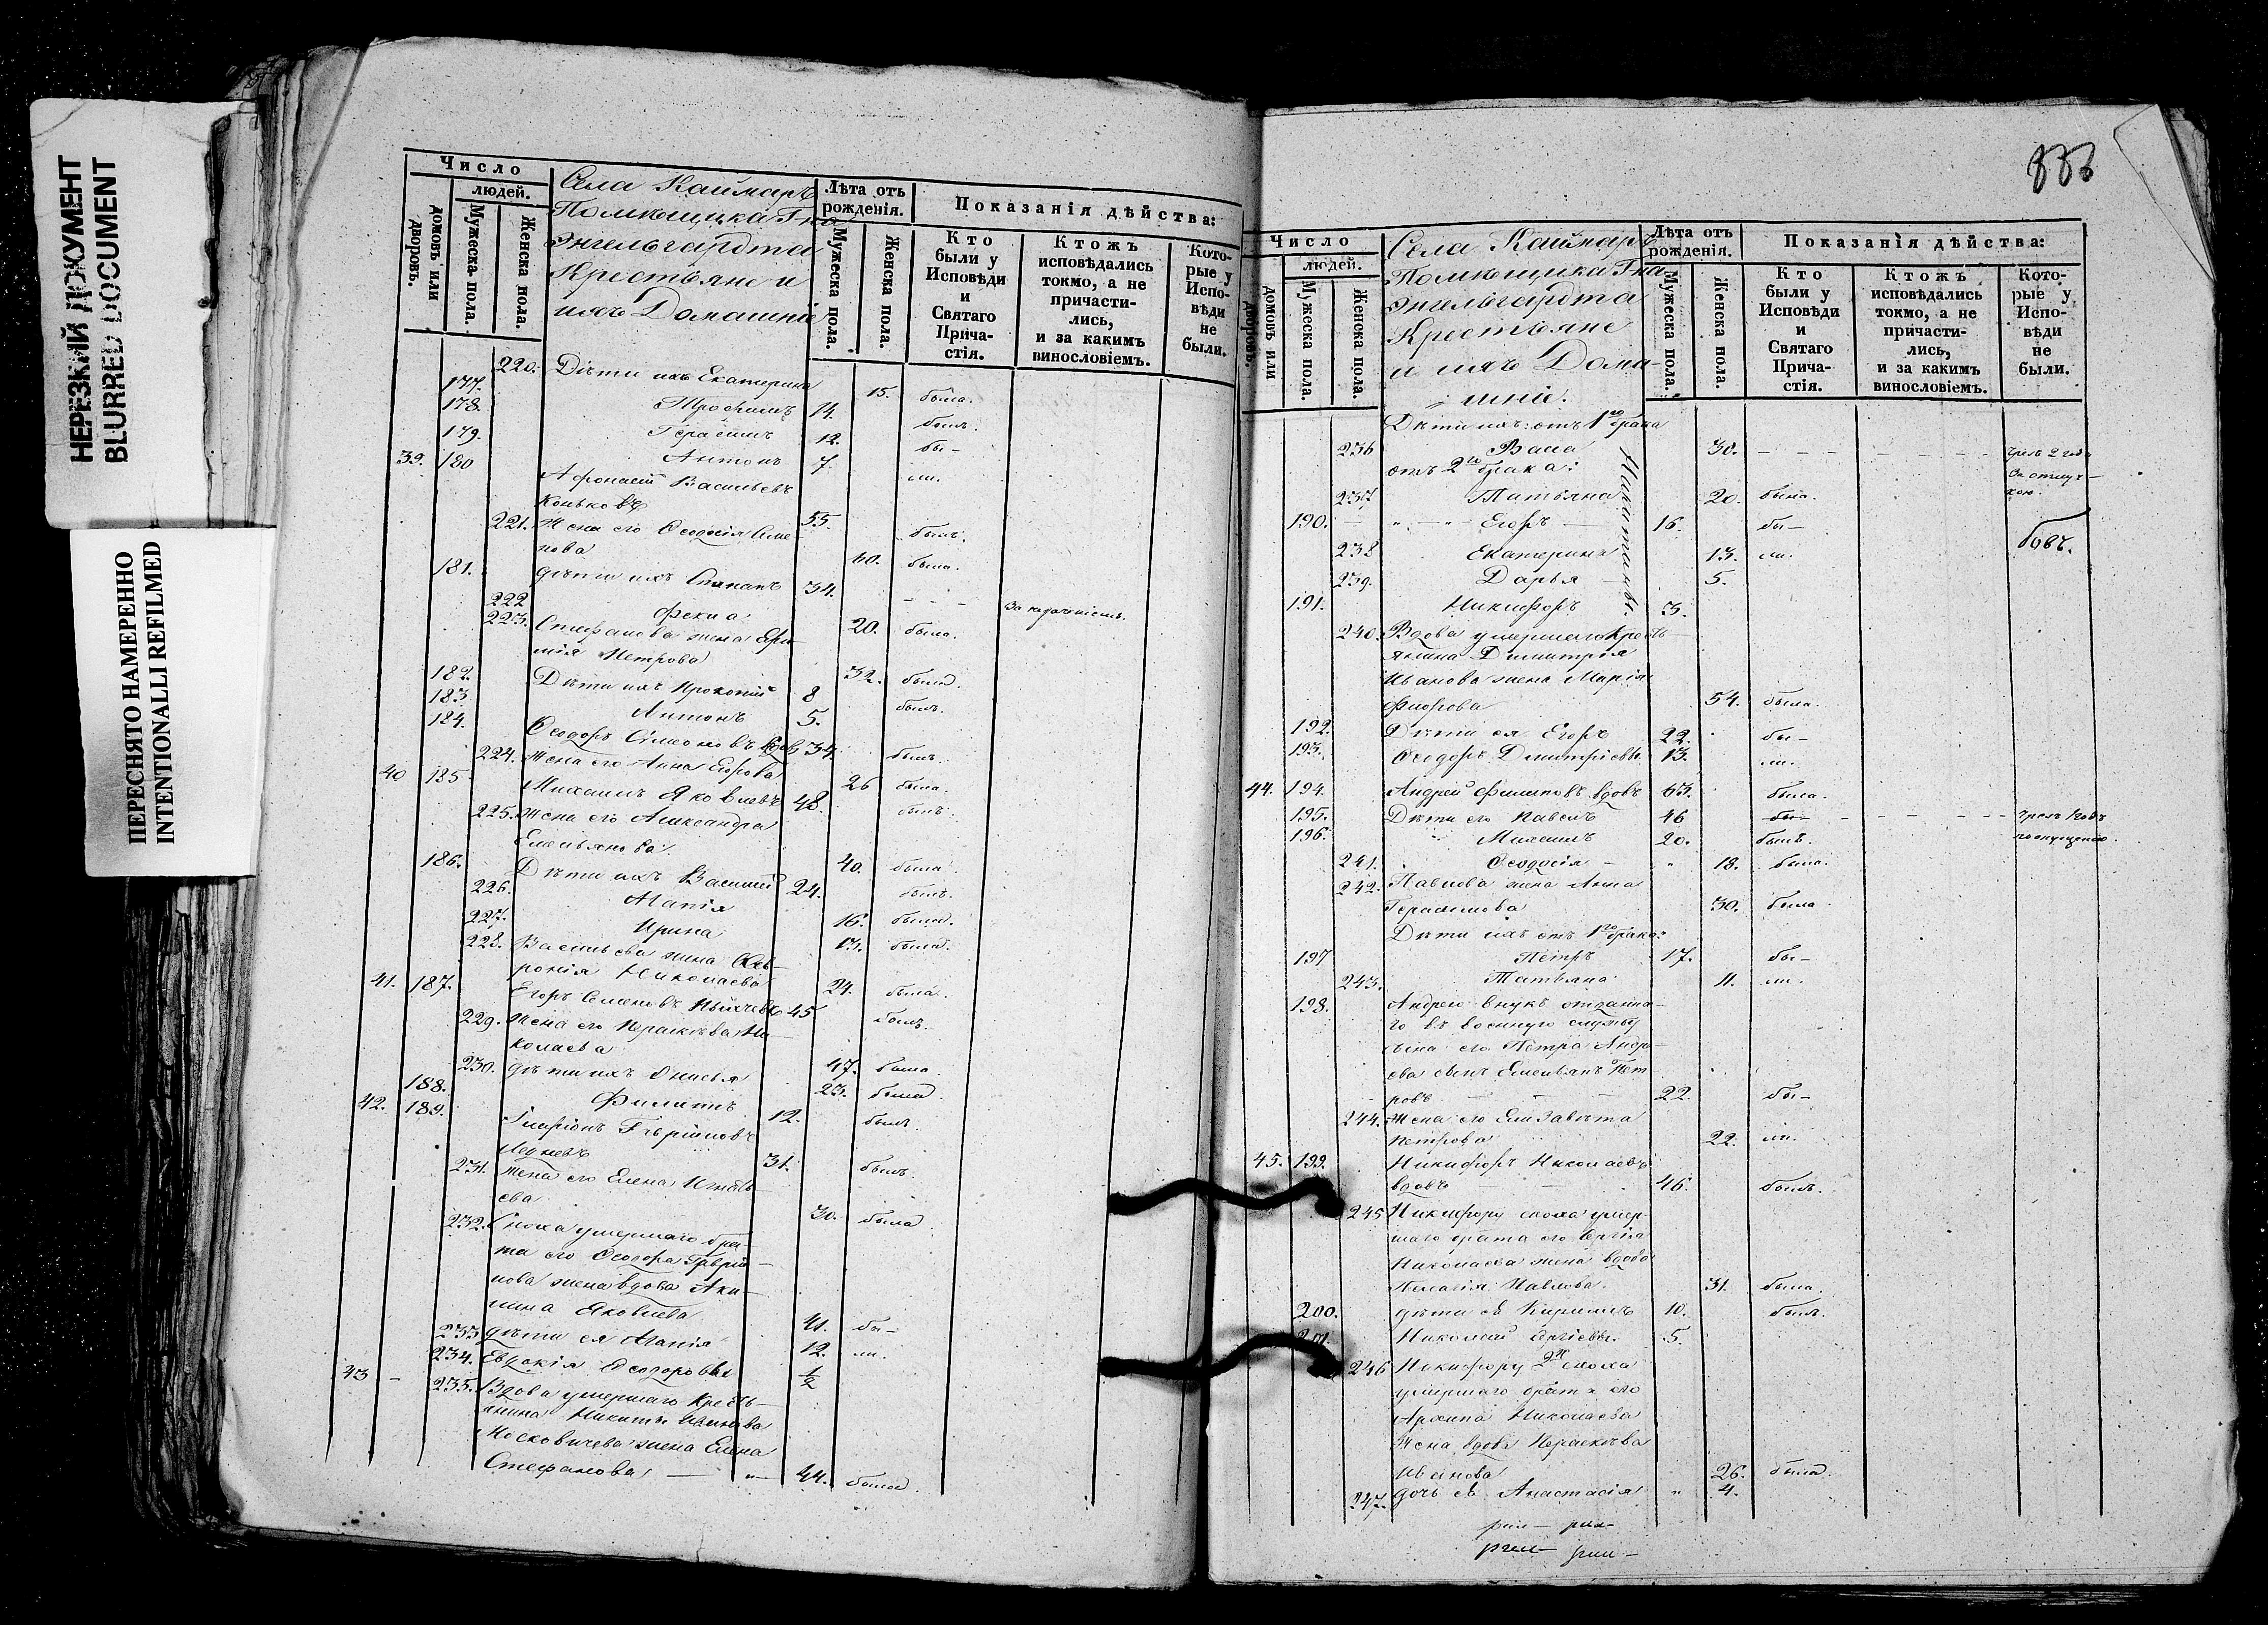 НЕРЕЗКИЙ ДОКУМЕНТ
BLURRED DOCUMENT
ПЕРЕСНЯТО НАМЕРЕННО
INTENTIONALLI REFILMED
Число
людей.
домовъ или дворовъ.
Мужеска пола.
Женска пола.
Села Каймаръ
Помѣщика Гна
Энгельгардта
Крестьяне и
ихъ Домашніе
Лѣта отъ рожденія.
Мужеска пола.
Женска пола.
Показанія дѣйства:
Кто были у Исповѣди и Святаго Причастія.
Ктожъ исповѣдались токмо, а не причастились, и за какимъ винословіемъ.
Которые у Исповѣди не были.
220. Дѣти ихъ Екатерина 15. была.
177. Трофимъ 14. былъ.
178. Герасимъ 12. бы-
179. Антонъ 7. ли.
39. 180 Афонасій Васильевъ
Коньковъ 55. былъ.
221. Жена его Ѳеодосія Семе
нова 60. была.
181. дѣти ихъ Стефанъ 34. - - -
222 Фекла 20. была.
223. Стефанова жена
Петрова 32. была.
182. Дѣти ихъ Прокопій 8 былъ.
183. Антонъ 5.
184. Ѳеодоръ Симоновъ 34. былъ.
224. Жена его Анна Егорова 26 была.
40 185 Михаилъ Яковлевъ 48. былъ.
225. Жена его Александра
Емельянова 40. была
186. Дѣти ихъ Василій 24. былъ.
226. Марія 16. была.
227. Ирина 13. была.
228. Васильева жена Фев-
ронія Николаева 24. была.
41. 187. Егоръ Семеновъ 45 былъ.
229. Жена его Параскѣва Ни-
колаева 47. была.
230. дѣти ихъ Анисья 23. была.
188. Филипъ 12. былъ.
42. 189. Иларіонъ
31. былъ.
231. Жена его Елена Игнать-
ева 30. была
232. Сноха умершаго бра-
та его Ѳеодора Гаврии-
лова жена вдова Аку-
лина Яковлева 41. бы-
233 дѣти ея Марія 12. ли.
234. Евдокія Ѳеодоровы 1/2
43 - 235. Вдова умершаго Кресть-
янина Никиты
Московичева жена Елена
Стефанова — „ — 44. была.
886
Число
людей.
домовъ или дворовъ.
Мужеска пола.
Женска пола.
Села Каймаръ
Помѣщика Гна
Энгельгардта
Крестьяне
и ихъ Дома-
шніе.
Лѣта отъ рожденія.
Мужеска пола.
Женска пола.
Показанія дѣйства:
Кто были у Исповѣди и Святаго Причастія.
Ктожъ исповѣдались токмо, а не причастились, и за какимъ винословіемъ.
Которые у Исповѣди не были.
Дѣти ихъ: отъ 1го брака
236 Васса 30. - - - - - чрезъ 2 года
отъ 2го брака: За отлуч-
237 Татьяна 20. была. кою.
190. Егоръ 16. бы-
238 Екатерина 13. ли.
239. Дарья 5.
191. Никифоръ 3.
Никитины.
240. Вдова умершаго Кресть-
янина Димитрія
Иванова жена Марія
54. была.
192. Дѣти ея Егоръ 22. бы-
193. Ѳеодоръ Димитріевы 13. ли.
44. 194. Андрей Филиповъ вдовъ 63. былъ.
195. Дѣти его Павелъ 46 - - - - -
196. Михаилъ 20. былъ.
241. Ѳеодосія - „ 18. была.
242. Павлова жена Анна
Герасимова 30. была.
Дѣти ихъ отъ 1го брака:
197 Петръ 17. бы-
243. Татьяна 11. ли.
198. Андрею внукъ отданна-
го въ военную службу
сына его Петра Андре-
ева сынъ Емельянъ Пет
ровъ - - - 22 бы-
244. Жена его Елизавета
Петрова 22. ли.
45. 199. Никифоръ Николаевъ
вдовъ - - 46. былъ.
245 Никифору сноха умер-
шаго брата его Сергія
Николаева жена вдова
Пелагія Павлова. 31. была.
200. дѣти ея Кирилъ 10. былъ.
201. Николай Сергіевы. 5.
246 Никифору 2я сноха
умершаго брата его
Архипа Николаева
Жена вдова Параскѣва
Иванова 26. была.
247. дочь ея Анастасія, „ 4.